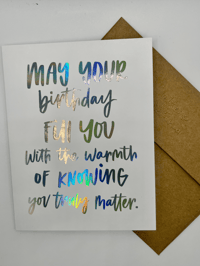 MAY YOUR
birthday
Fill YOU
with the warmth
OF KNOWING
you truly matter.